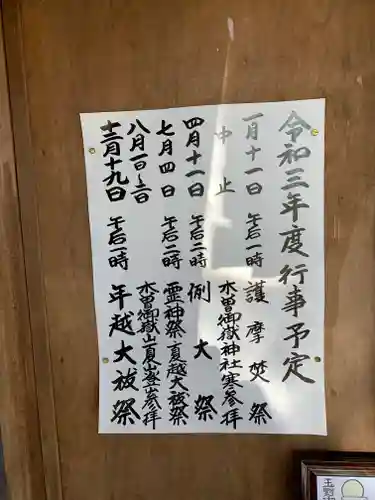 令和三年度行事予定
一月十一日 午后一時 護摩焚祭
中止 木曽御嶽神社寒参拝
四月十一日 午后二時 例大祭
七月四日 午后二時 霊神祭 夏越大祓祭
八月一日～二日 木曽御嶽山夏山登山参拝
十二月十九日 午后一時 年越大祓祭